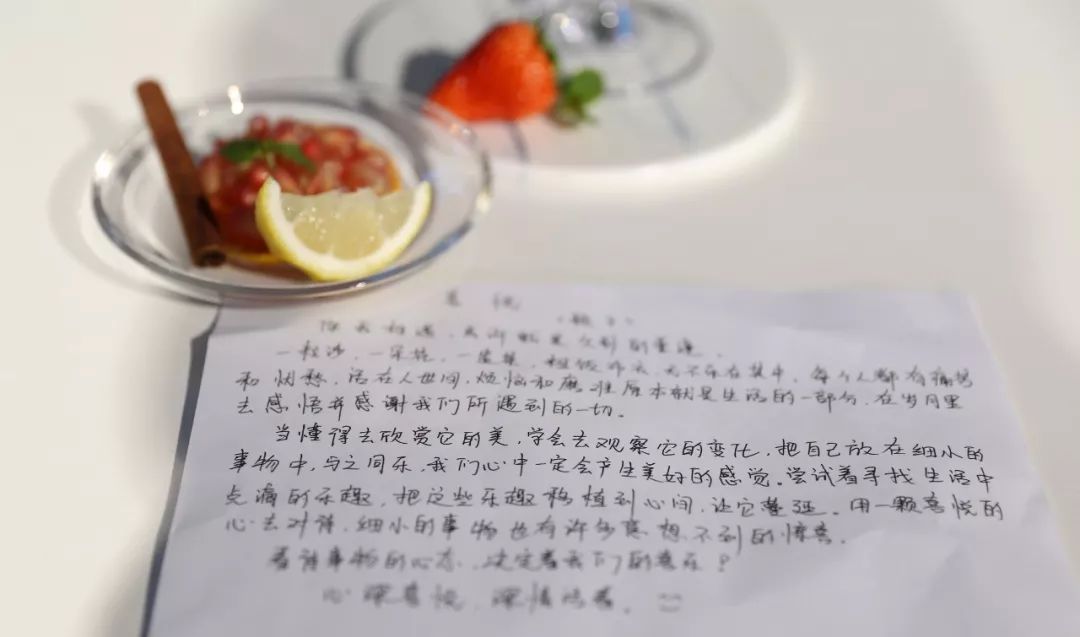 喜悦
你我初遇,
一粒沙,一朵花,一盏茶,粗饭布衣,无不乐在其中,每个人都有痛苦
和忧愁,活在人世间,烦恼和磨难原本就是生活的一部分,在岁月里
去感悟并感谢我们所遇到的一切。
当懂得去欣赏它的美,学会去观察它的变化,把自己放在细小的
事物中,与之同乐,我们心中一定会产生美好的感觉。尝试着寻找生活中
点滴的乐趣,把这些乐趣移植到心间,让它蔓延。用一颗喜悦的
心去对待,细小的事物也有许多意想不到的惊喜。
看待事物的心态,决定着我们的喜乐?
心深喜悦,深情活着。